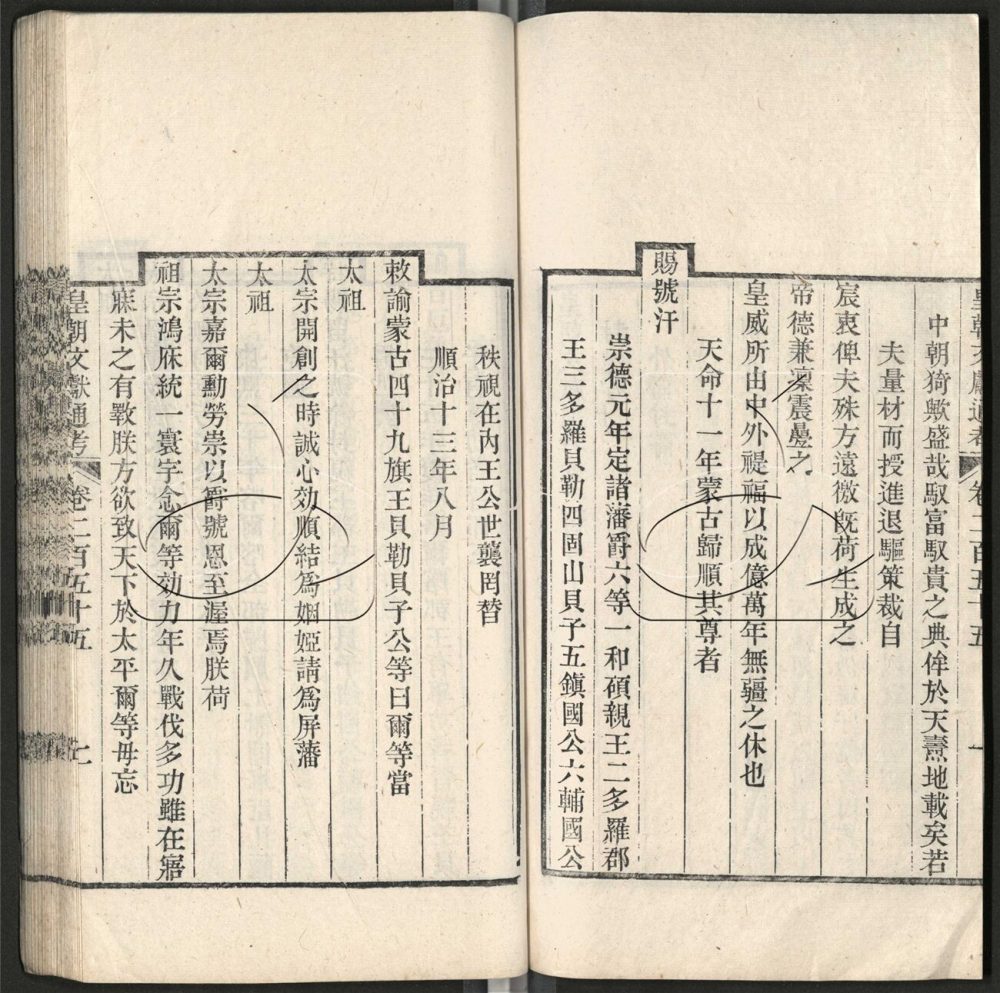 皇朝文獻通考 卷二百五十五
中朝猗歟盛哉馭富馭貴之典侔於天燾地載矣若
夫量材而授進退驅策裁自
宸衷俾夫殊方遠徼既荷生成之
帝德兼凜震疊之
皇威所由中外禔福以成億萬年無疆之休也
天命十一年蒙古歸順其尊者
賜號汗
崇德元年定諸藩爵六等一和碩親王二多羅郡
王三多羅貝勒四固山貝子五鎮國公六輔國公
秩視在內王公世襲罔替
順治十三年八月
敕諭蒙古四十九旗王貝勒貝子公等曰爾等當
太祖
太宗開創之時誠心効順結為姻婭請為屏藩
太祖
太宗嘉爾勳勞崇以爵號恩至渥焉朕荷
祖宗鴻庥統一寰宇念爾等効力年久戰伐多功雖在寤
寐未之有斁朕方欲致天下於太平爾等毋忘
皇朝文獻通考 卷二百五十五 七